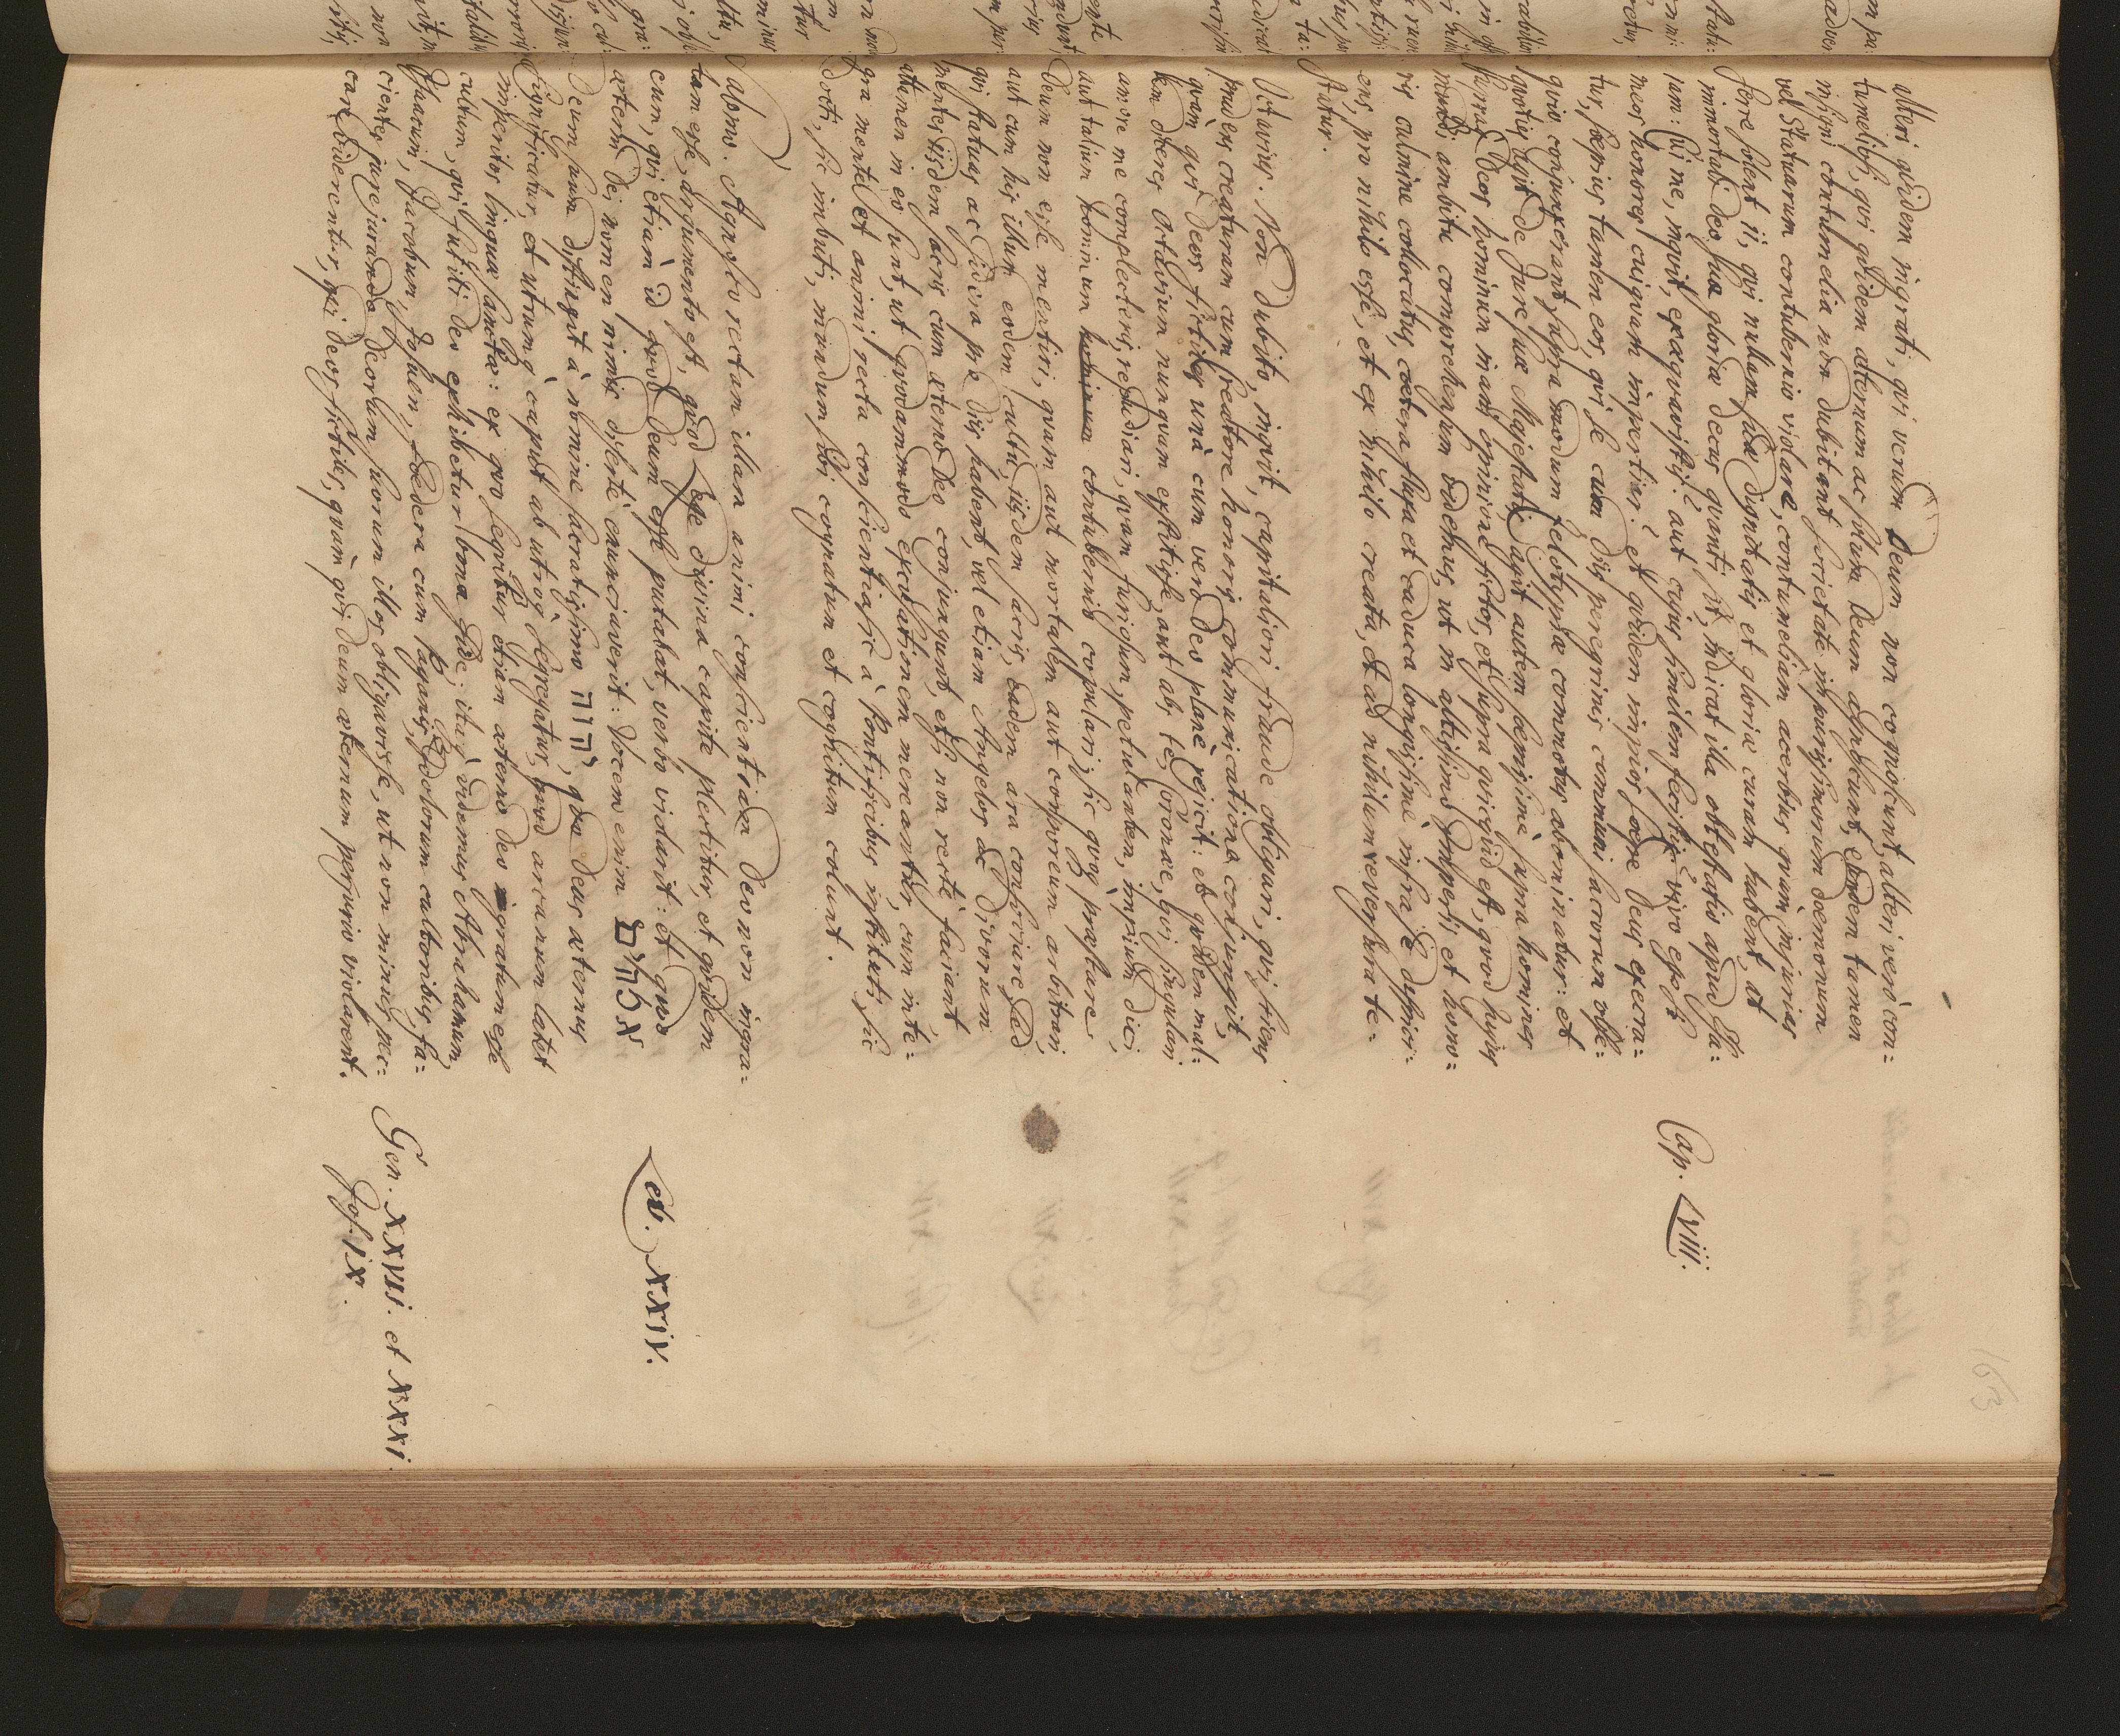 163
alteri quidem ingrati, qui verum Deum non cognoscunt, alteri verò con=
tumeliosi, qui quidem aeternum ac solum Deum agnoscunt, eundem tamen
insigni contumelia non dubitant societate impurissimorum doemonum
vel Statuarum contubernio violare, contumeliam acerbius quàm injurias
ferre solent ii, qui ullam suae dignitatis et gloriae curam habent, at
immortali deo sua gloria decus quanti sit, indicat illa obtestatio apud Esa=
iam: Cui me, inquit, exaequavistis? aut cujus similem fecistis? vivo ego si
meos honores cuiquam impertiar! et quidem impios saepe Deus execra=
tur, saepius tamen eos, qui se cum diis peregrinis communi sacrorum obse=
quio conjunxerant, supra modum zelotypia commotus abominatur: et
quoties agit de Jure suae Majestatis, agit autem saepissimè, supra homines
supra Deos hominum inani opinione fictos, et supra quicquid est, quod hujus
mundi ambitu comprehensum videmus, ut in altissimo Imperii et hono=
ris culmine collocatus, caetera stupa et caduca longissimè infra se despici=
ens, pro nihilo esse, et ex nihilo creata, et ad nihilum reversura te=
statur.
Octavius. Non dubito, inquit, capitaliori fraude obligari, qui sciens
prudens creaturam cum Creatore honoris communicatione conjungit,
quàm qui Deos fictiles unà cum vero Deo planè rejicit: et quidem mal=
lem diceres Octavium nunquam extitisse, aut abs te, Coronae, qui singulari
amore me complecteris, repudiari, quam furiosum, petulantem, impium dici,
aut talium hominum hominum contubernio copulari; sic quoq praestare
Deum non esse mentiri, quam aut mortalem aut corporeum arbitrari,
aut cum his illum eodem cultu, iisdem sacris, eadem ara consociare, sed
qui statuas ac sidera pro diis habent, vel etiam Angelos ac Divorum
mentes iisdem sacris cum aeterno Deo conjungunt, etsi non rectè faciant
attamen in eo sunt, ut quodammodo excusationem mereantur, cum inte=
gra mente et animi recta conscientia, sic à Pontificibus instituti, sic
docti, sic imbuti, mundum sibi cognatum et cognitum colunt.
Salomo. Agnosco rectam illam animi conscientiam Deo non ingra=
tam esse, argumento est, quod esse divina capite plectitur, et quidem
cum, qui etiam id quod Deum esse putabat, verbo violarit: et quod
autem Dei nomen nimis disertè enunciaverit: Vocem enim אלהים
Deum suum distinguit à nomine sacratissimo יהוה, quo Deus aeternus
significatur, et utrumq caput ab utroq segregatur, quod arcanum latet
imperitos lingua sancta: ex quo sequitur etiam aeterno Deo gratum esse
cultum, qui futili deo exhibetur bona fide; itaq videmus Abrahamum
Isaacum, Jacobum, Josuen, foedera cum Paganis, Idolorum cultoribus, fa=
cientes jurejurando deorum suorum illos obligavisse, ut non minus pec=
care viderentur, qui deos fictiles, quàm qui Deum aeternum perjurio violarent.
Cap. LVIII.
Lev. XXIV.
Gen. XXVII. et XXXI.
Jos. IX.